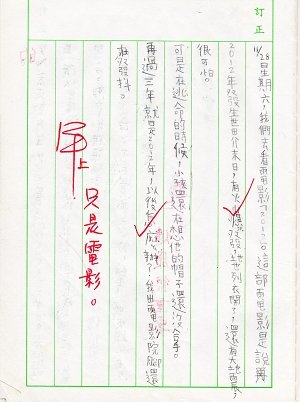 訂正
11/28日星期六,我們去看電影2012。這部電影是說
2012年發生世界末日,有火山爆發,地列開了,還有大地震,
很可怕。
可是在逃命的時候,小孩還在想他的帽子還沒拿。
再過三年就是2012年,以後怎麼辦?我出電影院腳還
在發抖。
只是電影。